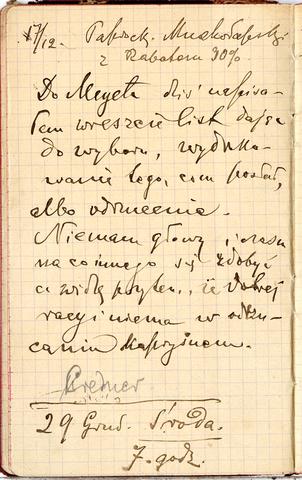 17/12.
z Rabatem 30%.
Do Meyeta dziś napisa-
łem wreszcie list dając
do wyboru, wydruko-
wanie tego, com posłał,
albo odrzucenie.
Niemam głowy i czasu
na co innego się zdobyć
a widzę przytem, że dobrej
racyi niema w odrzu-
caniu
Credner
29 Grud. Środa.
7. godz.